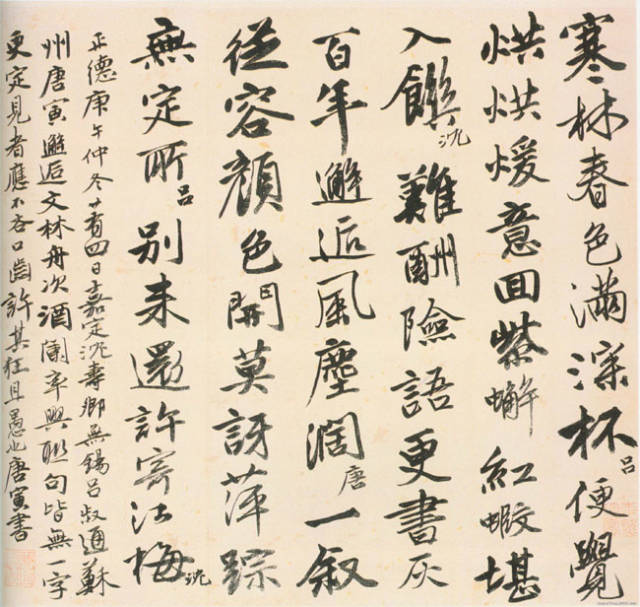 寒林春色滿深杯呂便覺
烘烘煖意回紫蠏紅蝦堪
入饌沈難酬險語更書灰
百年邂逅風塵濶唐一叙
從容顏色開莫訝萍踪
無定所呂別来還許寄江梅沈
正德庚午仲冬廿有四日嘉定沈壽卿無錫呂叔通蘇
州唐寅邂逅文林舟次酒闌率興聯句皆無一字
更定見者應不吝口齒許其狂且愚也唐寅書